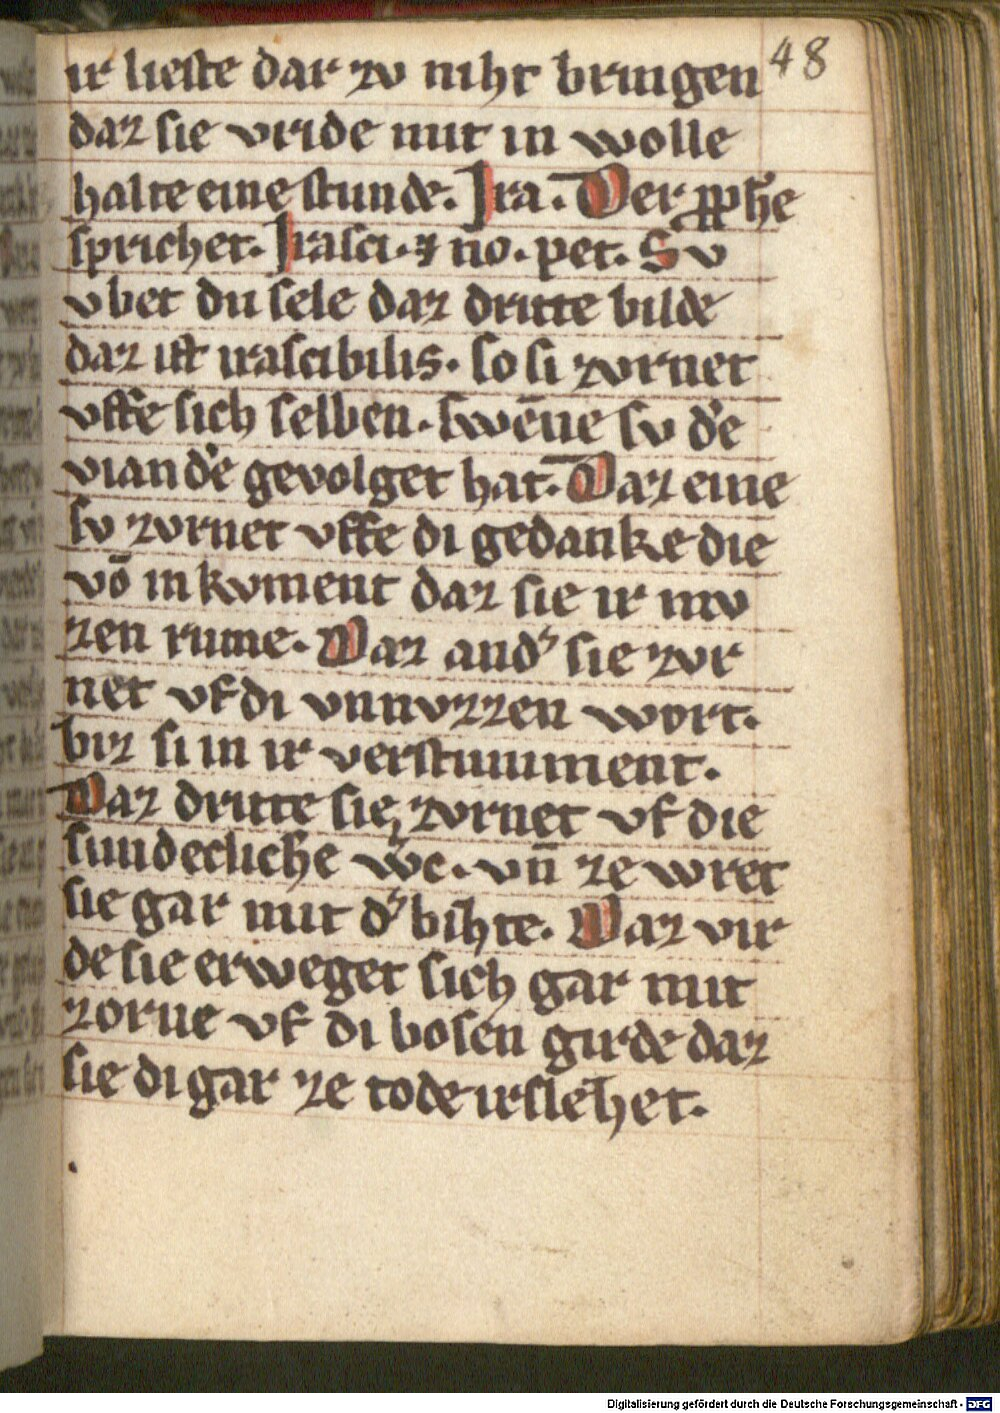 48
ir lieste dar zv niht bringen
daz sie vride mit in wolle
halte eine stunde. Ira. Der ꝓph̄e
sprichet. Irasci. ⁊ no. pet. Sv
vbet du sele daz dritte bilde
daz ist irascibilis. so si zvrnet
vffe sich selben. swēne sv d͛e
viand͛e gevolget hat. Daz eine
sv zvrnet vffe di gedanke die
vō in kvment daz sie ir mv
zen rume. Daz and͛ sie zvr
net vf di vnnvzzen wort.
biz si in ir verstumment.
Daz dritte sie zvrnet vf die
sundecliche w͛c. vn̄ ze wret
sie gar mit d͛ bihte. Daz vir
de sie erweget sich gar mit
zorne vf di bosen girde daz
sie di gar ze tode irslehet.
Digitalisierung gefördert durch die Deutsche Forschungsgemeinschaft - DFG